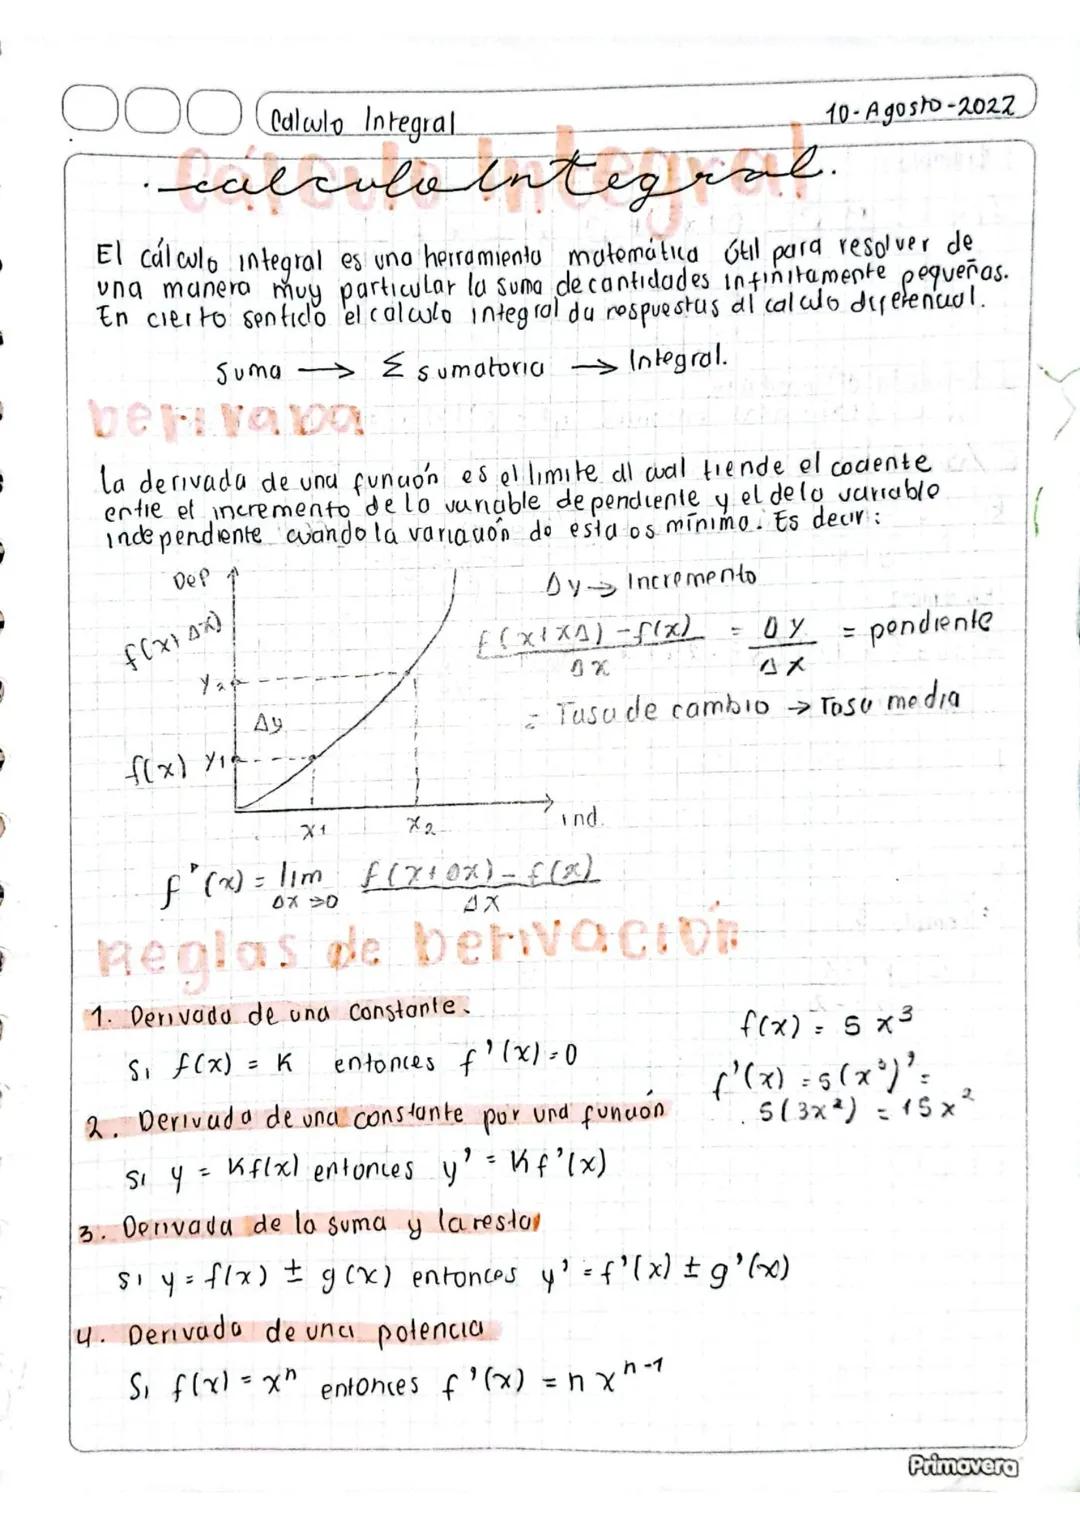 Calculo Integral
10-Agosto-2022
Cálculo Integral
·calculo Integral.
El cálculo integral es una herramienta matemática útil para resolver de
una manera muy particular la suma de cantidades infinitamente pequeñas.
En cierto sentido el calculo integral da respuestas al calculo diferencial.
Suma → Σ sumatoria → Integral.
Derivada
la derivada de una función es el limite al cual tiende el cociente
entre el incremento de la variable dependiente y el de la variable
independiente cuando la variación de esta es mínimo. Es decir:
Dep
Δy → Incremento
f(x+Δx)
f(x+xΔ)-f(x) = Δy = pendiente
Δx Δx
y2
= Tasa de cambio → Tasa media
Δy
f(x) y1
x1 x2 ind.
f'(x) = lim f(x+Δx)-f(x)
Δx→0 Δx
Reglas de Derivación
1. Derivada de una constante.
f(x) = 5x³
Si f(x) = K entonces f'(x)=0
f'(x) = 5(x³)' =
5(3x²) = 15x²
2. Derivada de una constante por una función
Si y = Kf(x) entonces y' = Kf'(x)
3. Derivada de la suma y la resta
si y = f(x) ± g(x) entonces y' = f'(x) ± g'(x)
4. Derivada de una potencia
Si f(x) = xⁿ entonces f'(x) = nxⁿ⁻¹
Primavera